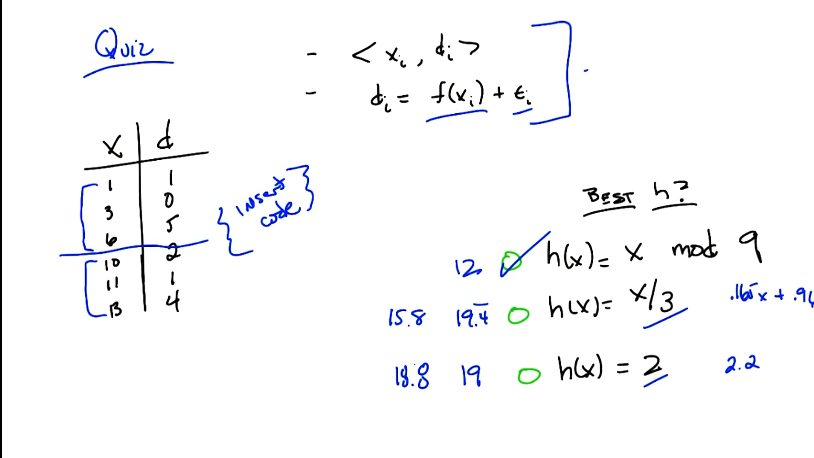 Quiz
- < xᵢ , dᵢ >
- dᵢ = f(xᵢ) + εᵢ
x d
1 1
3 0
6 5
10 2
11 1
13 4
{ insert code }
BEST h?
12 h(x) = x mod 9
15.8 19.4̅ h(x) = x/3 .165x + .9
18.8 19 h(x) = 2 2.2